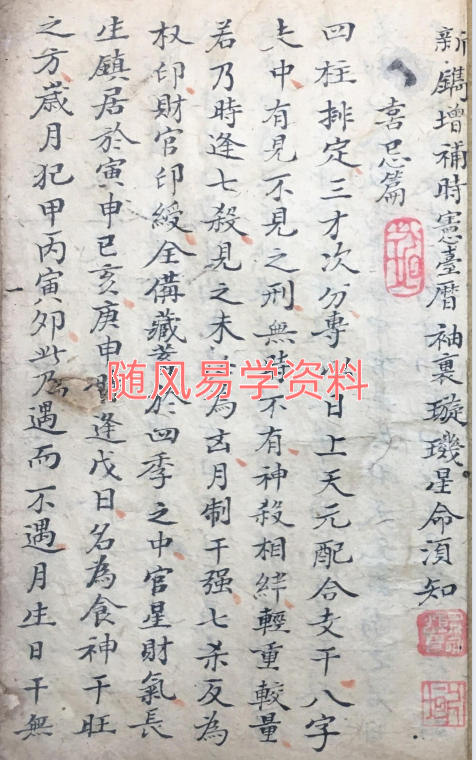 新鐫增補時憲臺曆袖裏璇璣星命須知
喜忌篇
四柱排定三才次分專以日上天元配合支干八字
中有見不見之刑無時不有神殺相絆輕重較量
若乃時逢七殺見之未必為凶月制干强七杀反為
权印財官印綬全備藏蓄於四季之中官星財氣長
生鎮居於寅申巳亥庚申時逢戊日名為食神干旺
之方歲月犯甲丙寅夘此乃遇而不遇月生日干無
随风易学资料